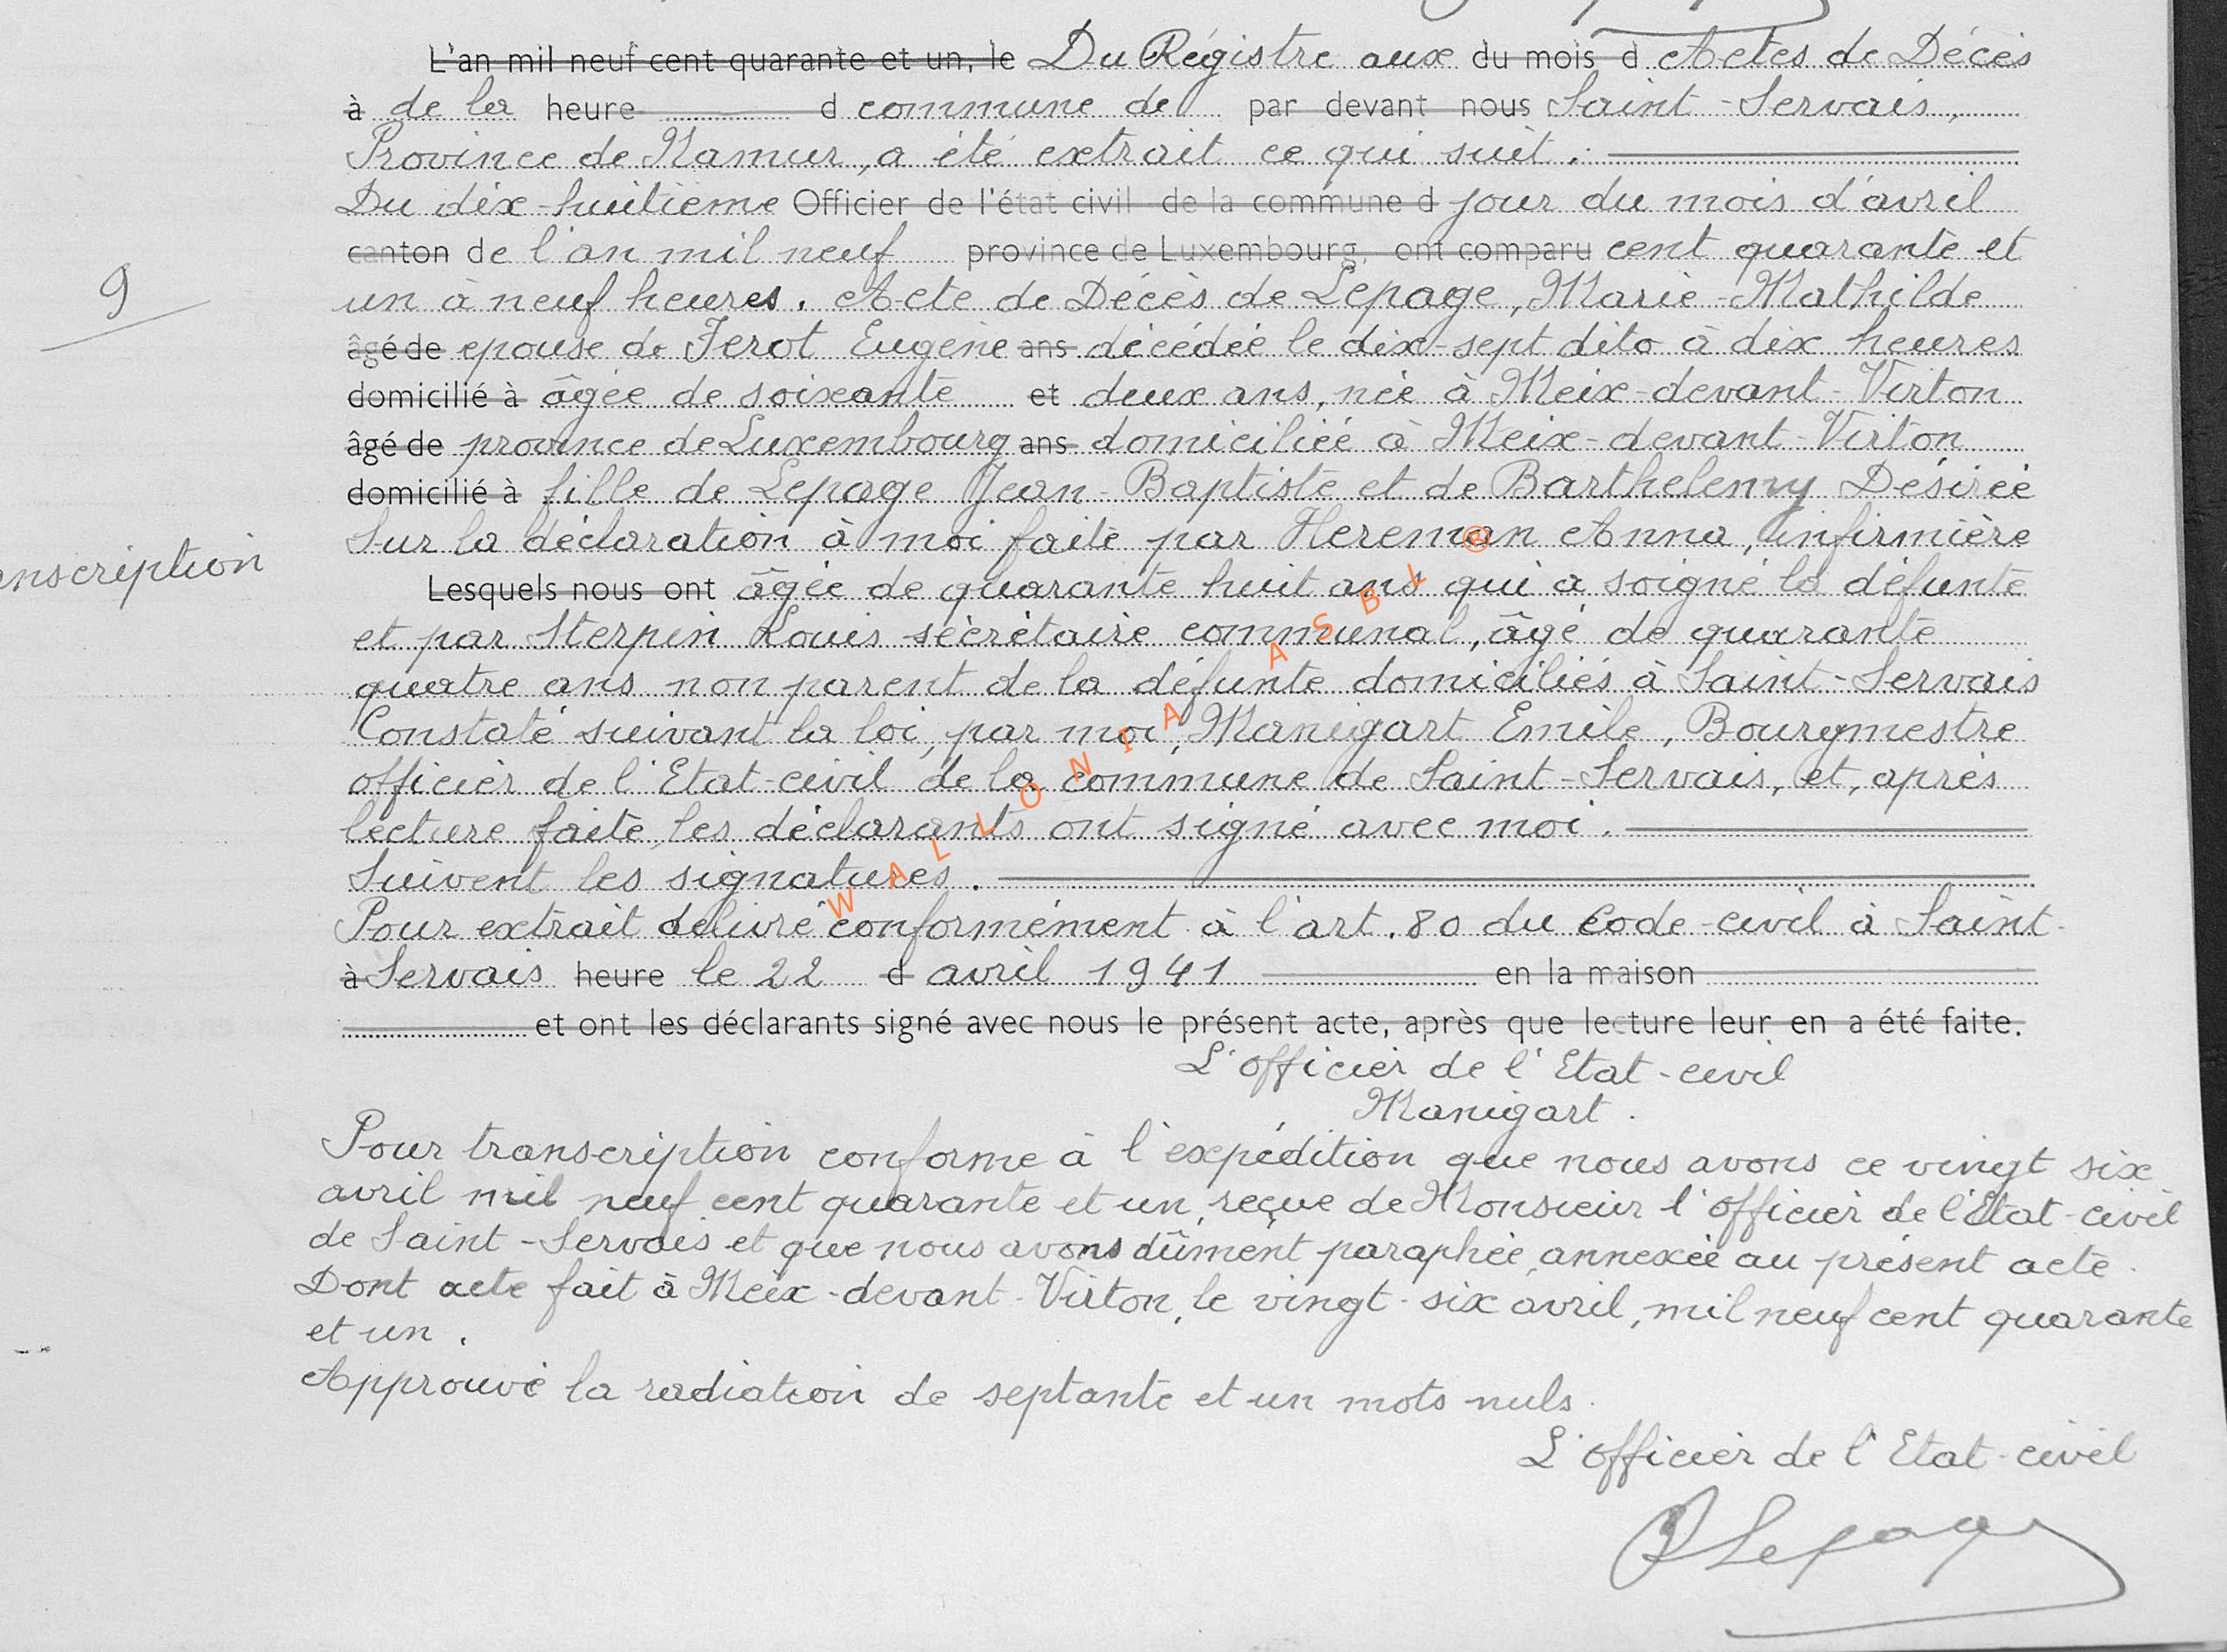 L'an mil neuf cent quarante et un, le Du Régistre aux du mois d Actes de Décès
à de la heure d commune de par devant nous Saint-Servais,
Province de Namur, a été extrait ce qui suit.
Du dix-huitième Officier de l'état civil de la commune d jour du mois d'avril
canton de l'an mil neuf province de Luxembourg, ont comparu cent quarante et
9
un à neuf heures. Acte de Décès de Lepage, Marie-Mathilde
âgé de epouse de Ferot Eugène ans décédée le dix-sept dito à dix heures
domicilié à âgée de soixante et deux ans, née à Meix-devant-Virton
âgé de province de Luxembourg ans domiciliée à Meix-devant-Virton
domicilié à fille de Lepage Jean-Baptiste et de Barthelemy Désirée
Sur la déclaration à moi faite par Hereman Anna, infirmière
anscription
Lesquels nous ont âgée de quarante huit ans qui a soigné la défunte
et par Sterpin Louis secrétaire communal, âgé de quarante
quatre ans non parent de la défunte domiciliés à Saint-Servais
Constaté suivant la loi, par moi, Manigart Emile, Bourgmestre
officier de l'Etat-civil de la commune de Saint-Servais, et, après
lecture faite, les déclarants ont signé avec moi.
Suivent les signatures.
WALLONIA ASBL ®
Pour extrait délivré conformément à l'art. 80 du Code-civil à Saint-
à Servais heure le 22 d avril 1941 en la maison
et ont les déclarants signé avec nous le présent acte, après que lecture leur en a été faite.
L'officier de l'Etat-civil
Manigart.
Pour transcription conforme à l'expédition que nous avons ce vingt six
avril mil neuf cent quarante et un, reçue de Monsieur l'officier de l'Etat-civil
de Saint-Servais et que nous avons dûment paraphée, annexée au présent acte.
Dont acte fait à Meix-devant-Virton, le vingt-six avril, mil neuf cent quarante
et un.
Approuvé la radiation de septante et un mots nuls.
L'officier de l'Etat-civil
Lepage